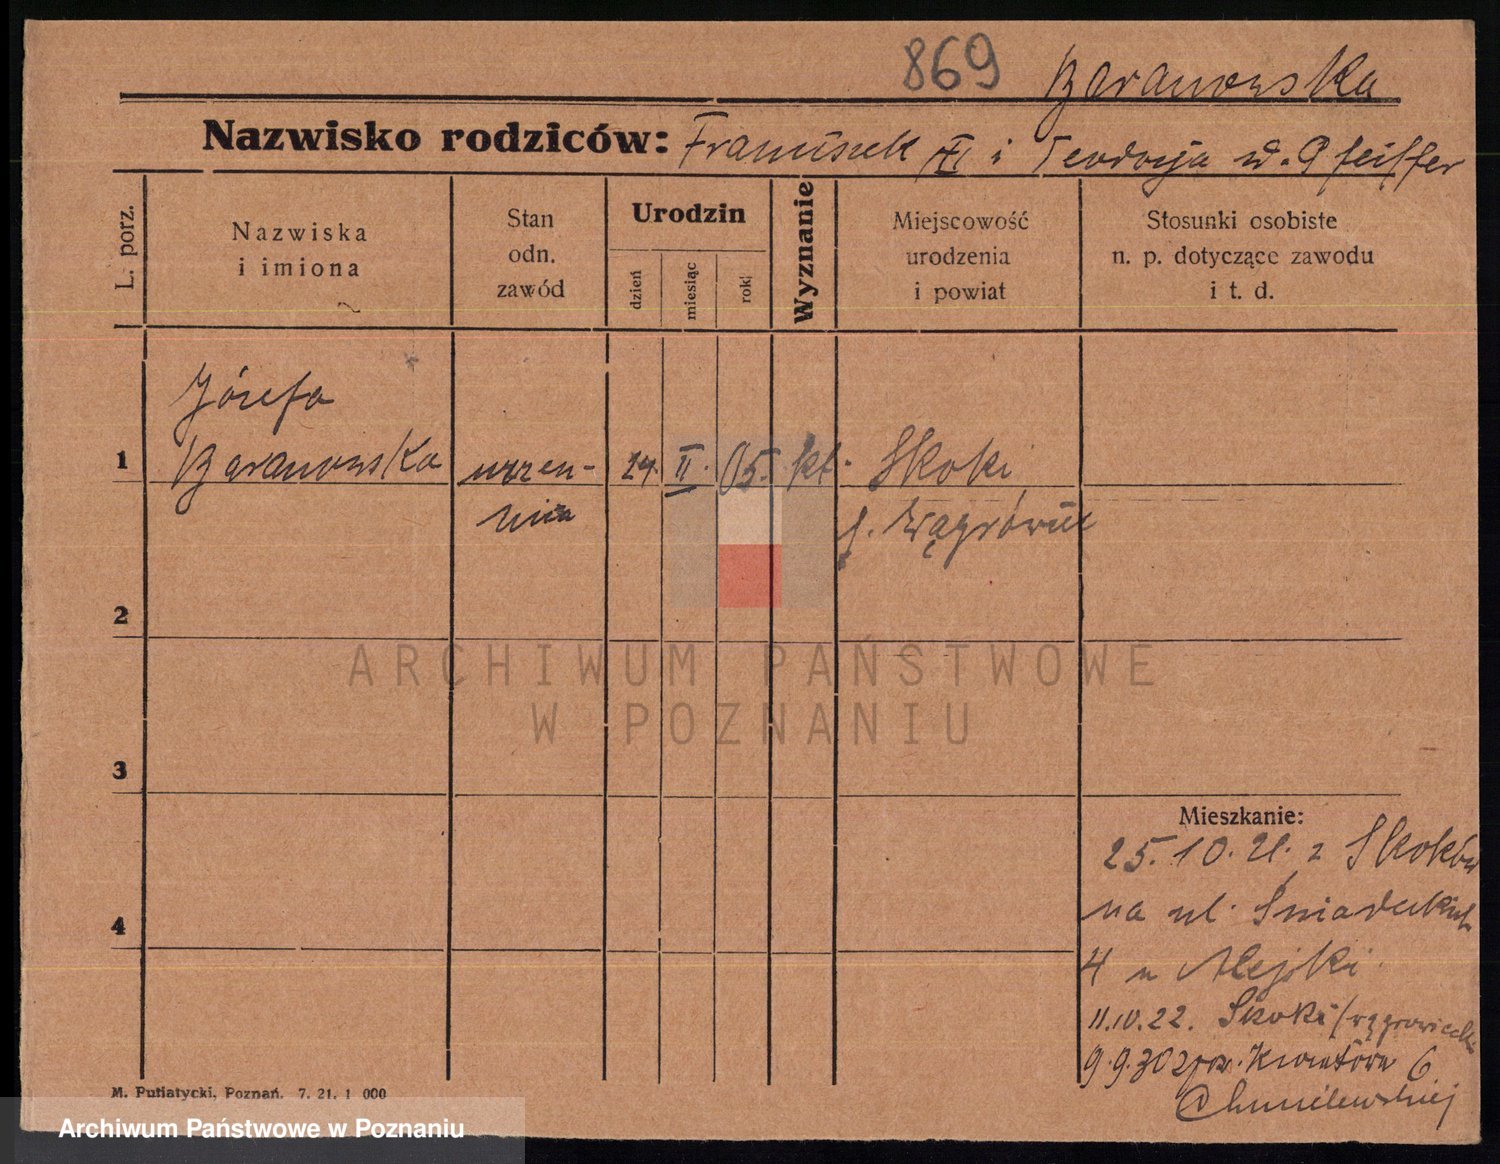 869
Baranowska
Nazwisko rodziców: Franciszek III i Teodozja d. Pfeiffer
L. porz.
Nazwiska
i imiona
Stan
odn.
zawód
Urodzin
dzień
miesiąc
rok
Wyznanie
Miejscowość
urodzenia
i powiat
Stosunki osobiste
n. p. dotyczące zawodu
i t. d.
Józefa
1 Baranowska uczen- 24. II. 05. kt. Skoki
nica
p. Wągrówiec
2
3
4
Mieszkanie:
25.10.21. z Skoków
na ul. Śniadeckich
4 u
11.10.22. Skoki/wągrowiecki
9.9.30 Kwiatowa 6
Chmielewskiej
M. Putiatycki, Poznań. 7. 21. 1 000
ARCHIWUM PAŃSTWOWE
W POZNANIU
Archiwum Państwowe w Poznaniu